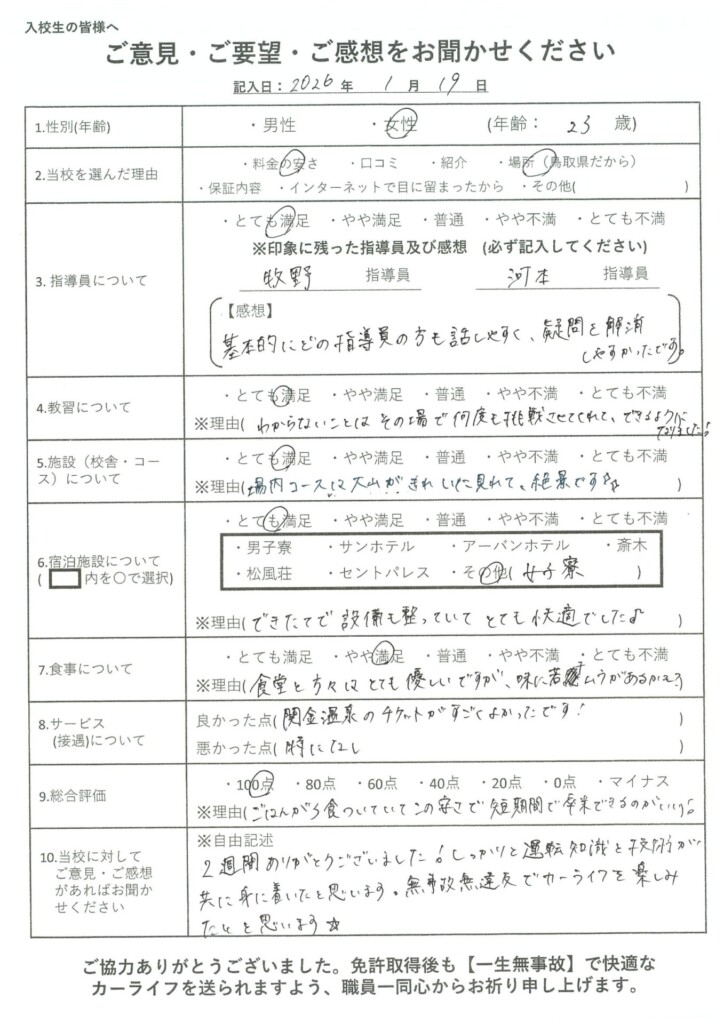 入校生の皆様へ
ご意見・ご要望・ご感想をお聞かせください
記入日：2026 年 1 月 19 日
1.性別(年齢) ・男性 ・女性 (年齢： 23 歳)
2.当校を選んだ理由 ・料金の安さ ・口コミ ・紹介 ・場所（鳥取県だから）
・保証内容 ・インターネットで目に留まったから ・その他( )
3. 指導員について ・とても満足 ・やや満足 ・普通 ・やや不満 ・とても不満
※印象に残った指導員及び感想 (必ず記入してください)
牧野 指導員 河本 指導員
【感想】
基本的にどの指導員の方も話しやすく、疑問を解消
しやすかったです。
4.教習について ・とても満足 ・やや満足 ・普通 ・やや不満 ・とても不満
※理由( わからないことはその場で何度も挑戦させてくれて、できるように
なりました！
5.施設（校舎・コース）について ・とても満足 ・やや満足 ・普通 ・やや不満 ・とても不満
※理由(場内コースは大山がきれいに見れて、絶景です♪ )
6.宿泊施設について ・とても満足 ・やや満足 ・普通 ・やや不満 ・とても不満
( 内を○で選択)
・男子寮 ・サンホテル ・アーバンホテル ・斎木
・松風荘 ・セントパレス ・その他( 女子寮 )
※理由(できたてで設備も整っていてとても快適でした♪ )
7.食事について ・とても満足 ・やや満足 ・普通 ・やや不満 ・とても不満
※理由(食堂の方々はとても優しいですが、味に若干ムラがあるかも )
8.サービス 良かった点(関金温泉のチケットがすごくよかったです！ )
(接遇)について 悪かった点(特になし )
9.総合評価 ・100点 ・80点 ・60点 ・40点 ・20点 ・0点 ・マイナス
※理由(ごはんが3食ついていてこの安さで短期間で卒業できるのがいい！
10.当校に対して
ご意見・ご感想
があればお聞か
せください
※自由記述
2週間ありがとうございました！しっかりと運転知識と技術が
共に身に着いたと思います。無事故無違反でカーライフを楽しみ
たいと思います☆
ご協力ありがとうございました。免許取得後も【一生無事故】で快適な
カーライフを送られますよう、職員一同心からお祈り申し上げます。